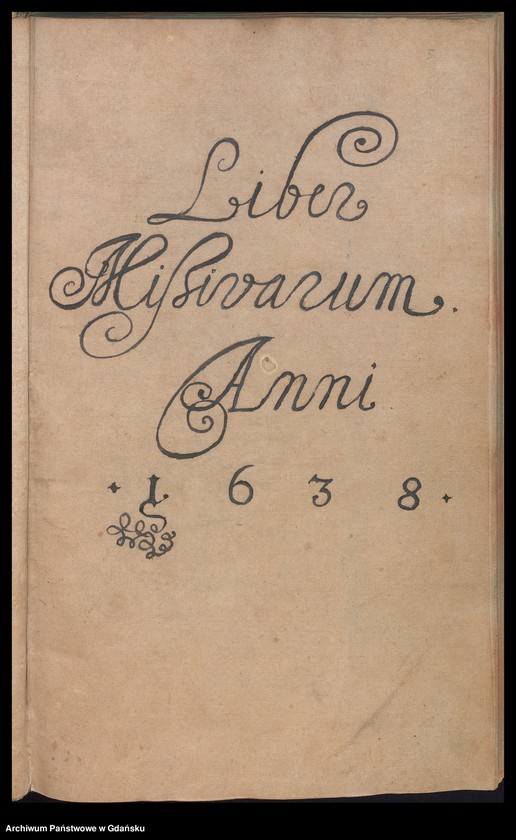 Liber
Missivarum.
Anni
1638.
Archiwum Państwowe w Gdańsku